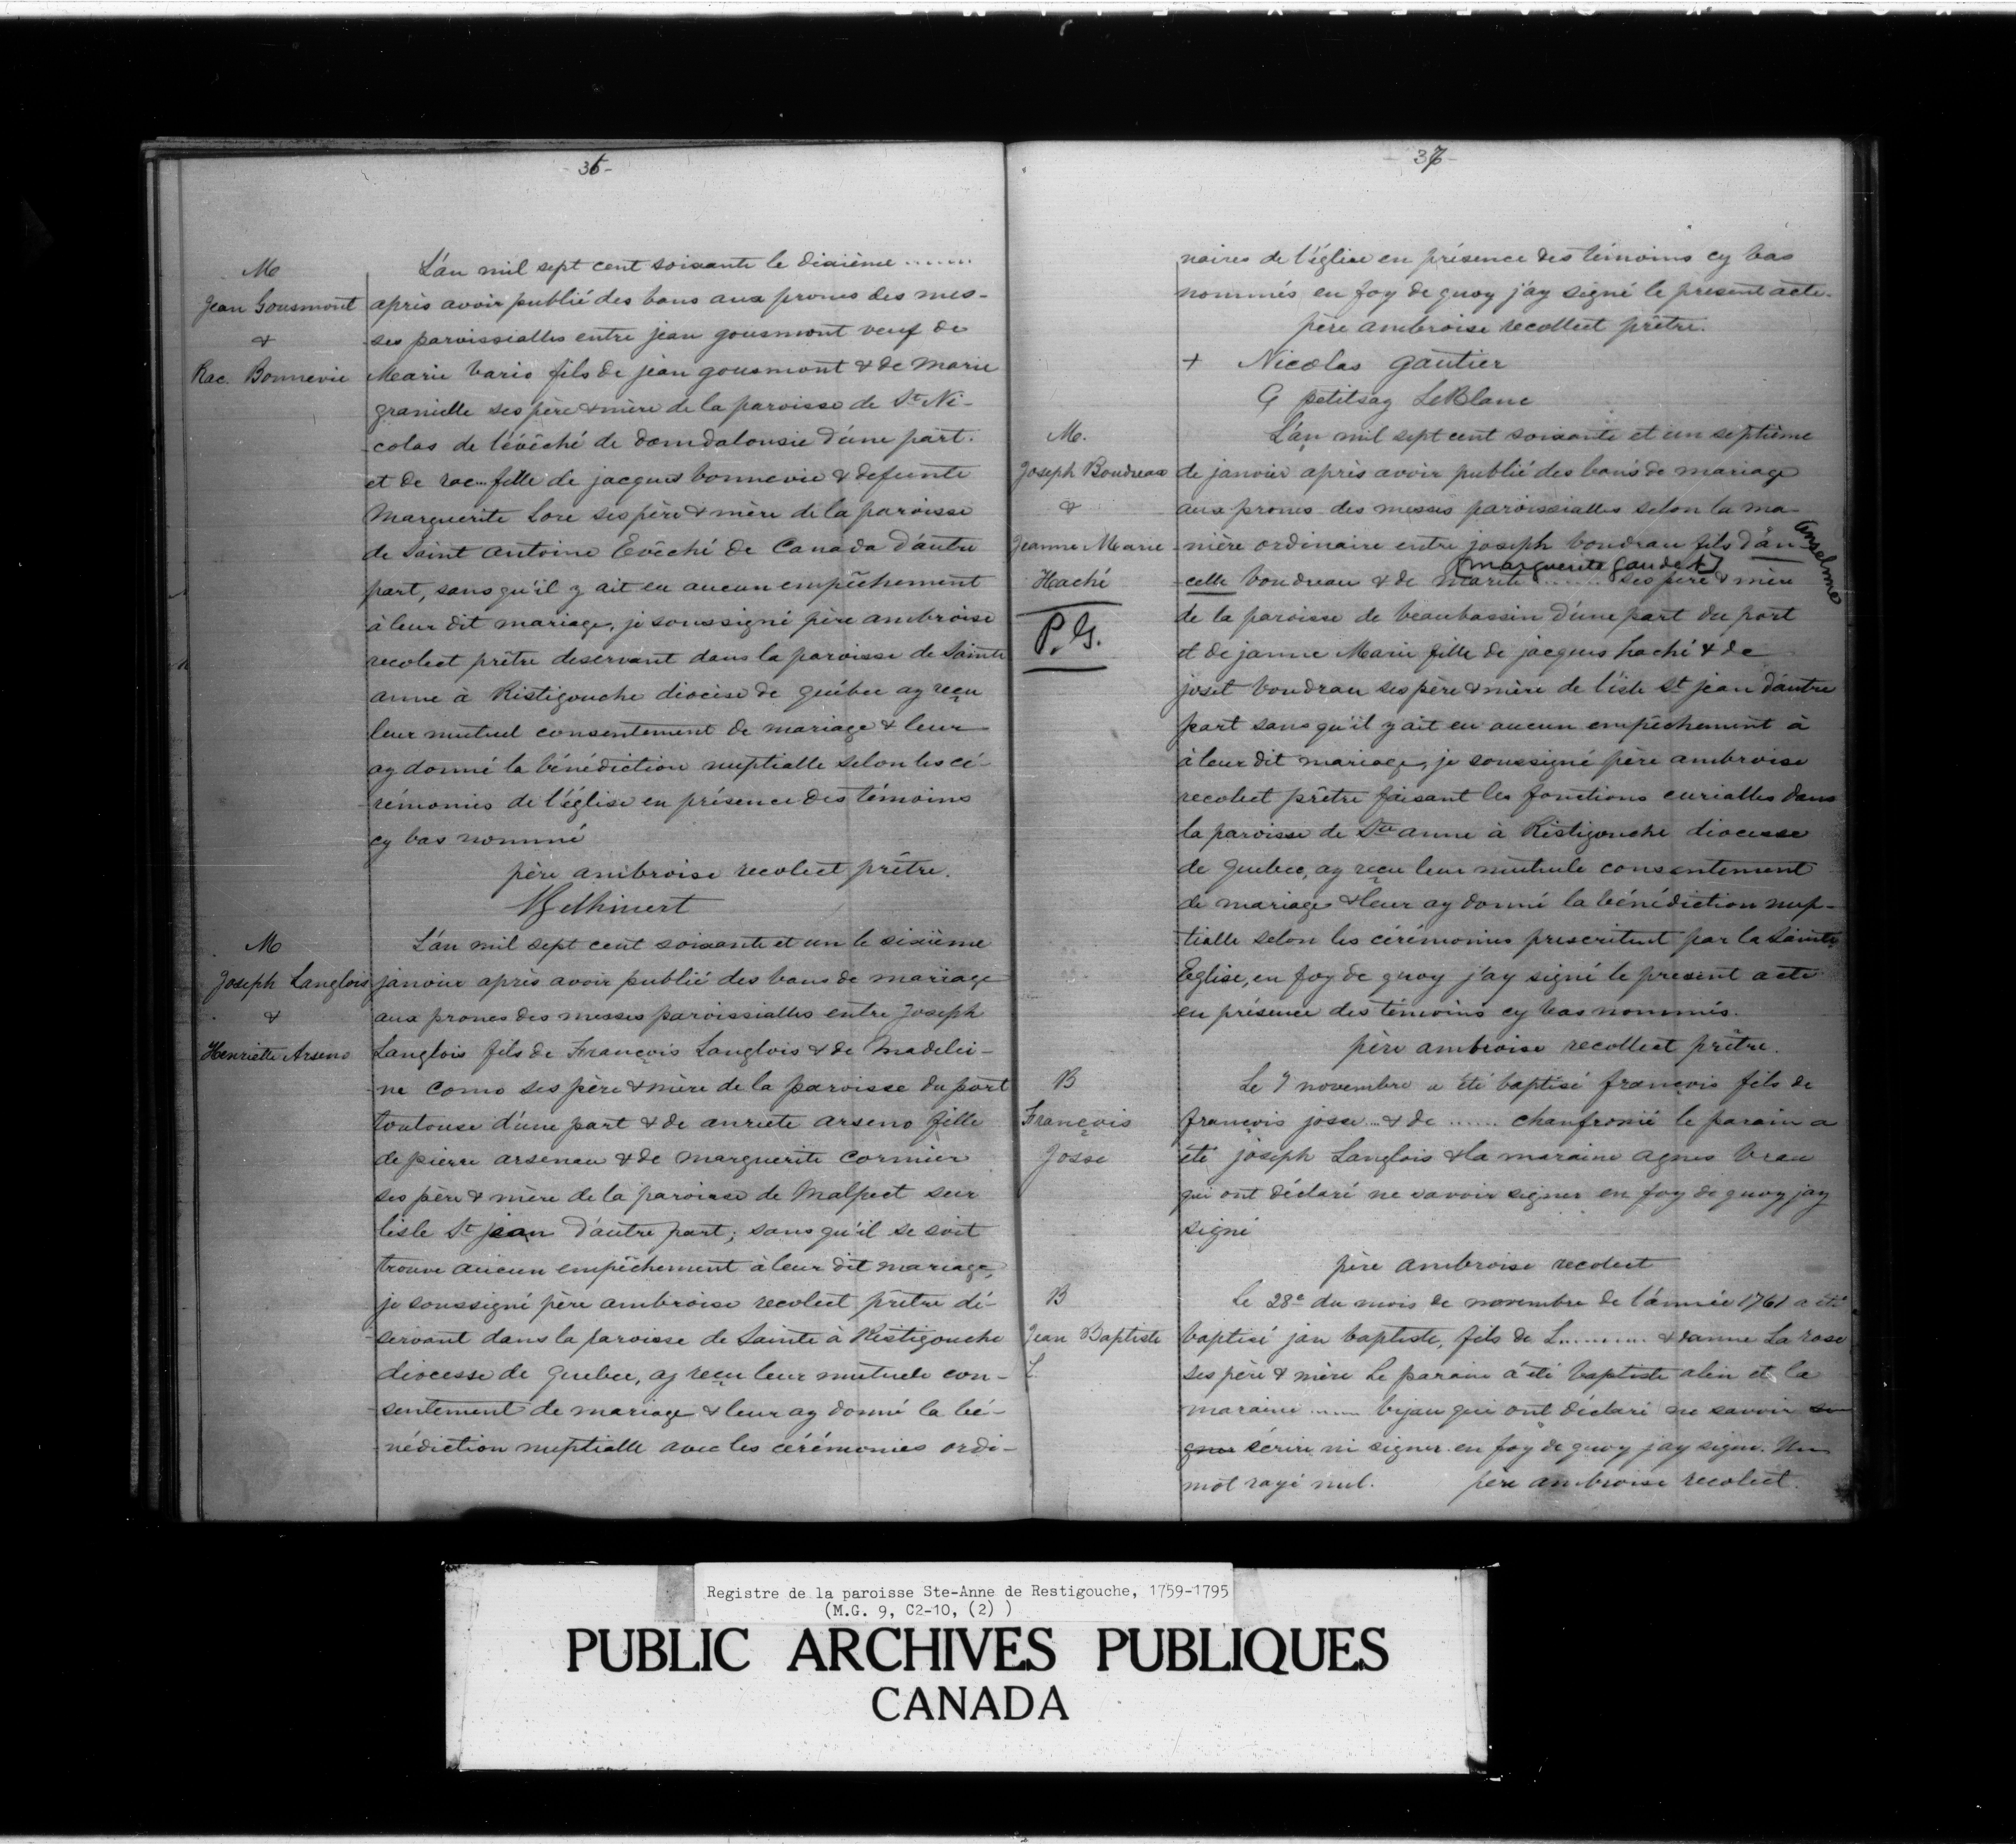 - 36 -
M
Jean Gousmont
&
Rac. Bonnevie
L'an mil sept cent soixante le dixième .......
après avoir publié des bans aux prones des mes-
ses paroissialles entre jean gousmont veuf de
Marie bario fils de jean gousmont & de Marie
granielle ses père & mère de la paroisse de St Ni-
colas de l'évêché de domdalousie d'une part.
et de rac... fille de jacques bonnevie & defunte
Marguerite Lore ses père & mère de la paroisse
de Saint Antoine Evêché de Canada d'autre
part, sans qu'il y ait eu aucun empêchement
à leur dit mariage, je soussigné père ambroise
recolect prêtre deservant dans la paroisse de Sainte
anne à Ristigouche diocèse de québec ay reçu
leur mutuel consentement de mariage & leur
ay donné la bénédiction nuptialle selon les cé-
rémonies de l'église en présence des témoins
cy bas nommé
père ambroise recolect prêtre.
M
Joseph Langlois
&
Henriette Arseno
L'an mil sept cent soixante et un le sixième
janvier après avoir publié des bans de mariage
aux prones des messes paroissialles entre Joseph
Langlois fils de François Langlois & de Madelei-
ne Como ses père & mère de la paroisse du port
toulouse d'une part & de anriete arseno fille
de pierre arseneau & de marguerite Cormier
ses père & mère de la paroisse de Malpect sur
lisle St jean d'autre part; sans qu'il se soit
trouve aucun empêchement à leur dit mariage,
je soussigné père ambroise recolect prêtre dé-
servant dans la paroisse de Sainte à Ristigouche
diocesse de Quebec, ay reçu leur mutuele con-
sentement de mariage & leur ay donné la bé-
nédiction nuptialle avec les cérémonies ordi-
- 37 -
naires de l'église en présence des témoins cy bas
nommés en foy de quoy j'ay signé le present acte.
père ambroise recollect prêtre.
+ Nicolas gautier
G petitsag LeBlanc
M.
Joseph Boudreau
&
Jeanne Marie
Haché
P.G.
L'an mil sept cent soixante et un septième
de janvier après avoir publié des bans de mariage
aux prones des messes paroissialles selon la ma-
nière ordinaire entre joseph boudrau fils d'an-
Anselme
(marguerite Gaudet)
celle boudreau & de marite ....... ses père & mère
de la paroisse de beaubassin d'une part du port
et de janne Marie fille de jacques haché & de
joset boudrau ses père & mère de l'isle St jean d'autre
part sans qu'il y ait eu aucun empêchement à
à leur dit mariage, je soussigné père ambroise
recolect prêtre faisant les fonctions curialles dans
la paroisse de Ste anne à Ristigouche diocesse
de Quebec, ay reçu leur mutuele consentement
de mariage & leur ay donné la bénédiction nup-
tialle selon les cérémonies prescritent par la Sainte
Eglise, en foy de quoy j'ay signé le present acte
en présence des témoins cy bas nommés.
père ambroise recollect prêtre.
B
François
Josse
Le 7 novembre a été baptisé françois fils de
françois josse .. & de ....... chanfronié le parain a
été joseph Langlois & la maraine agnes brau
qui ont déclaré ne savoir signer en foy de quoy jay
signé
père ambroise recolect
B
Jean Baptiste
L.
Le 28e du mois de novembre de l'année 1761 a été
baptisé jan baptiste, fils de L........... & danne La rose
ses père & mère Le parain a été baptiste alin et la
maraine ...... bijau qui ont déclaré ne savoir si
gner écrire ni signer en foy de quoy jay signé. Un
mot rayé nul. père ambroise recolect.
Registre de la paroisse Ste-Anne de Restigouche, 1759-1795
(M.G. 9, C2-10, (2) )
PUBLIC ARCHIVES PUBLIQUES
CANADA